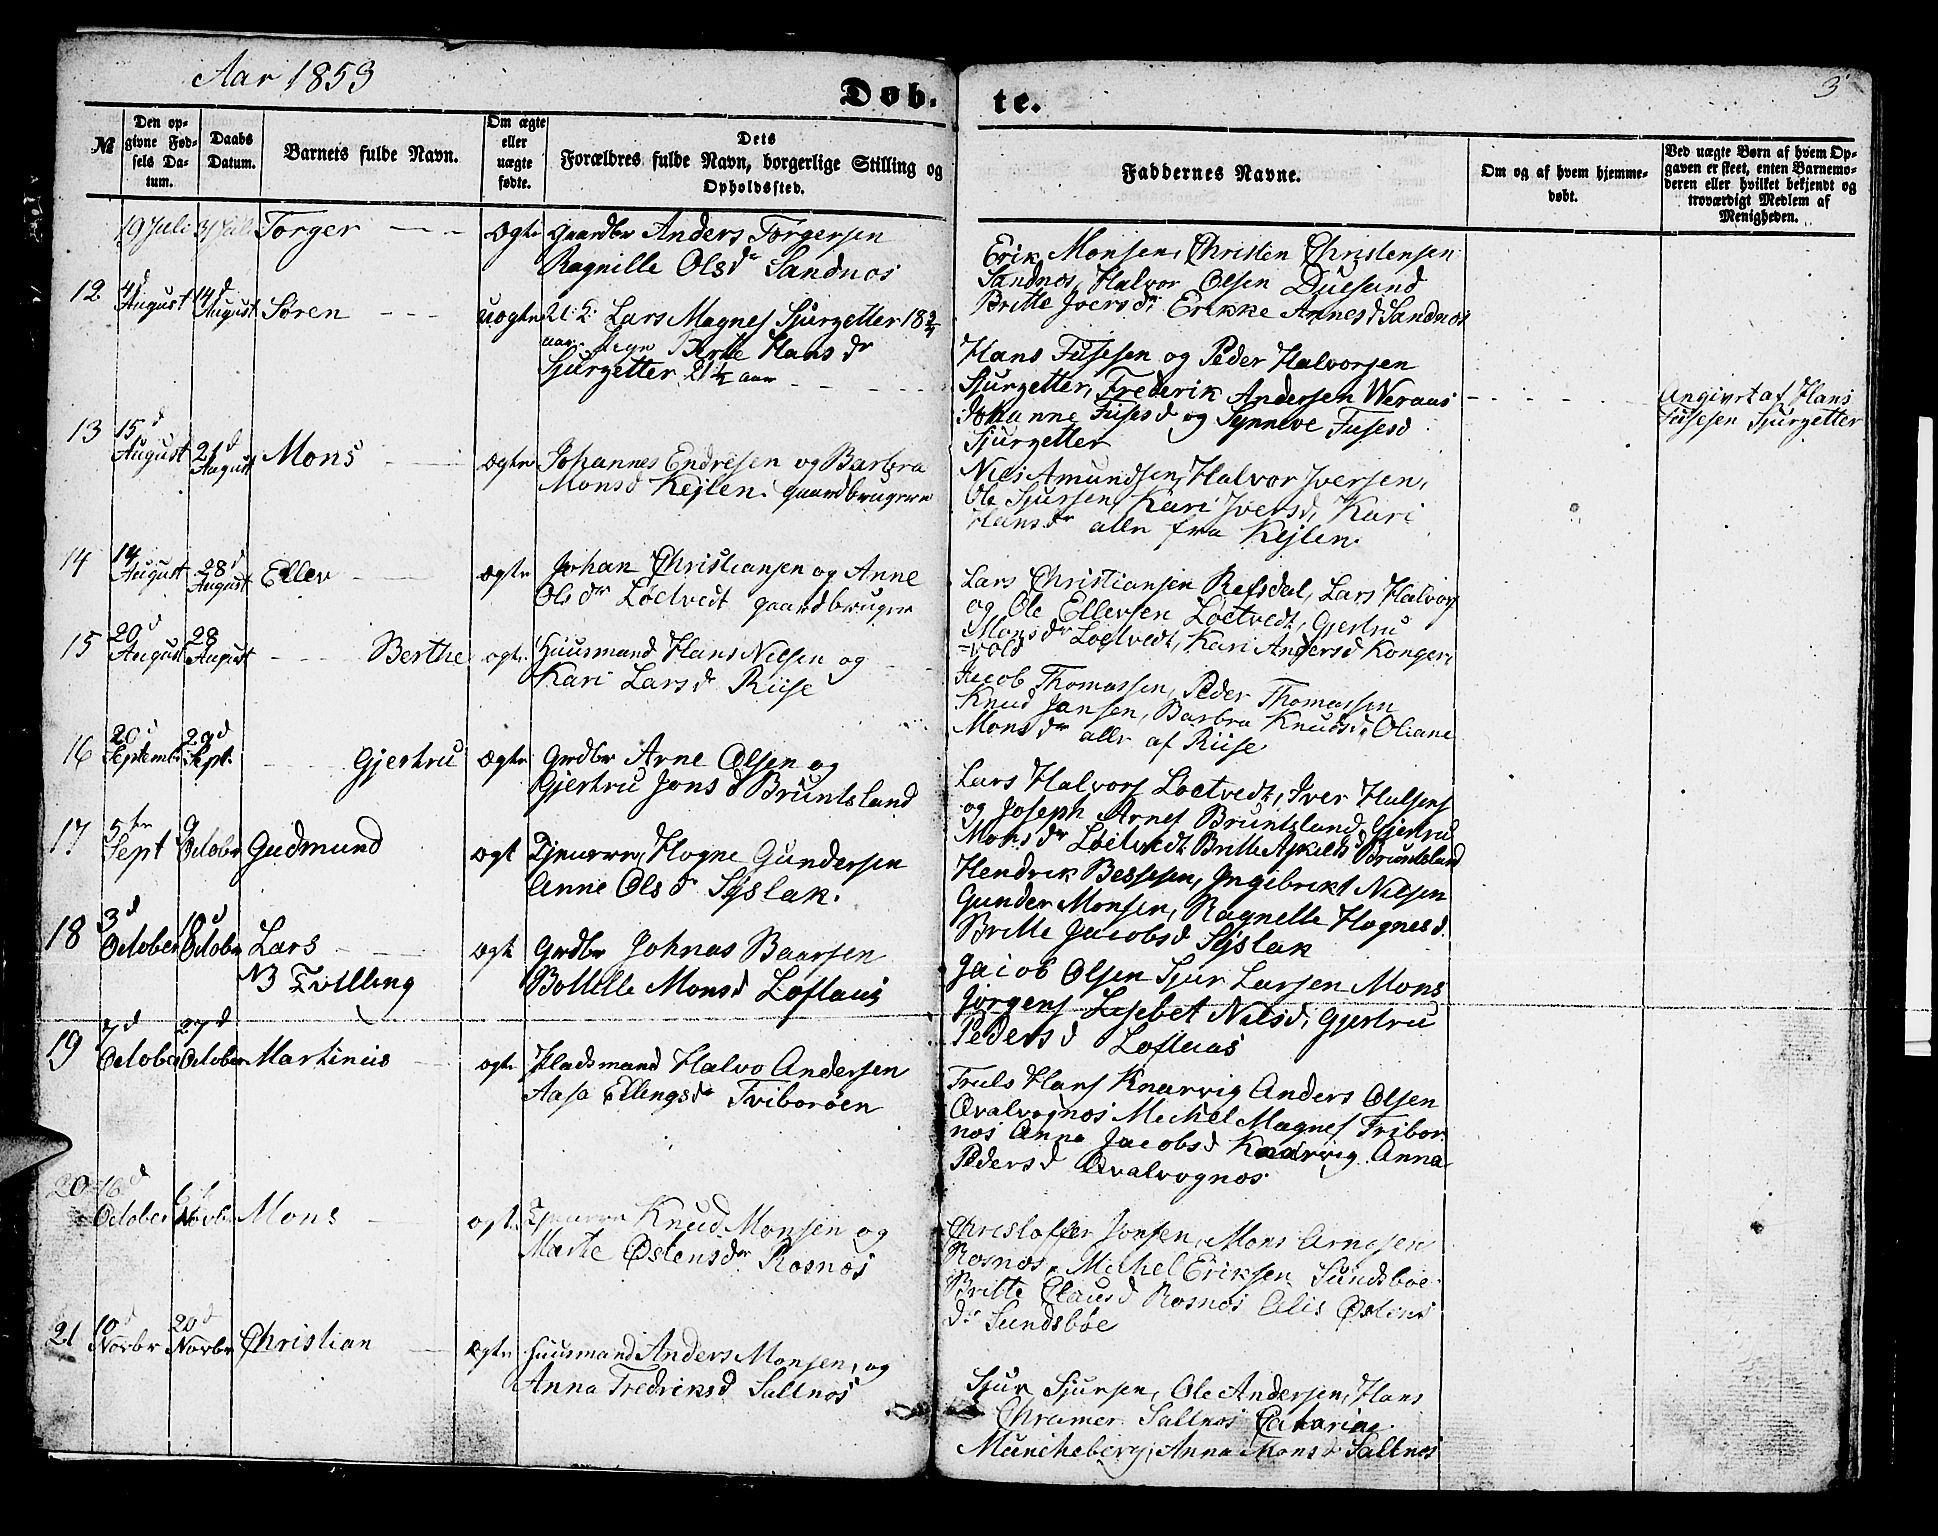 Aar 1853
Døb-
te.
3
No
Den op-
givne Fød-
sels Da-
tum.
Daabs
Datum.
Barnets fulde Navn.
Om ægte
eller
uægte
fødte.
Dets
Forældres fulde Navn, borgerlige Stilling og
Opholdssted.
Faddernes Navne.
Om og af hvem hjemme-
døbt.
Ved uægte Børn af hvem Op-
gaven er skeet, enten Barnemo-
deren eller hvilket bekjendt og
troværdigt Medlem af
Menigheden.
19 Juli 31 Juli Torger ægte Gaardbr Anders Torgersen
Ragnille Olsdr Sandnæs
Erik Monsen, Christen Christensen
Sandnæs, Halvor Olsen Duesund
Britte Iversdr Erikke Annesd Sandnæs
12 4d August 14d August Søren uægte Lars Magnes Sjursetter
Berte Hansdr
Sjursetter 21½ aar
Hans Fusesen og Peder Halvorsen
Sjursetter, Frederik Andersen Weraas
Johanne Fusesd og Synneve Fusesd
Sjursetter
Angivet af Hans
Fusesen Sjursetter
13 15d August 21d August Mons ægte Johannes Endresen og Barbra
Monsd Kejlen gaardbrugere
Niels Amundsen, Halvor Iversen,
Ole Sjursen, Kari Iversd, Kari
Hansdr alle fra Kejlen.
14 14 August 28d August Ellev ægte Johan Christiansen og Anne
Olsdr Løetvedt gaardbruger
Lars Christiansen Refsdal, Lars Halvors
og Ole Ellevsen Løetvedt, Gjertru
Monsdr Løetvedt, Kari Andersd Kongers
=vold
15 20d August 28 August Berthe ægte Huusmand Hans Nilsen og
Kari Larsdr Riise
Jacob Thomassen, Peder Thomassen
Knud Jansen, Barbra Knudsd, Oliane
Monsdr alle af Riise
16 20d Septembr 29d Sept. Gjertru ægte Grdbr Arne Olsen og
Gjertru Jonsd Bruntsland
Lars Halvors Løetvedt, Iver Halsens
og Joseph Arnes Bruntsland, Gjertrud
Monsdr Løetvedt Britte Askelds Bruntsland
17 5te Sept 9 Octobr Gudmund ægt Tjenere, Hogne Gundersen
Anne Olsdr Sÿslak.
Hendrik Bessesen, Ingebrikt Nilsen
Gunder Monsen, Ragnelle Hognesd.
Britte Jacobsd Sÿslak
18 3d October 10d Octobr Lars
NB Tvilling
ægt Grdbr Johnas Baarsen
Botelle Monsd Loftaas
Jacob Olsen Sjur Larsen Mons
Jørgens Lisebet Nilsd, Gjertru
Pedersd Loftaas
19 7d October 27d October Martinus ægte Pladsmand Halvo Andersen
Aasa Ellingsdr Triborøen
Truls Hans Knarvig Anders Olsen
Qvalvognæs Mickel Magnes Tribor
næs Anna Jacobsd Knarvig Anna
Pedersd Qvalvognæs
20 16d October 6d Novbr Mons ægt. Tjenere Knud Monsen og
Marte Østensdr Rosnæs
Christoffer Jonsen, Mons Arnesen
Rosnæs, Mickel Eriksen Sundsbøe
Britte Clausd Rosnæs Alis Østens
dr Sundsbøe
21 10d Novbr 20d Novbr Christian ægte Huusmand Anders Monsen, og
Anna Fredriksd Saltnæs
Sjur Sjursen, Ole Andersen, Hans
Chramer Saltnæs Catarine
Muncheberg, Anna Monsd Saltnæs